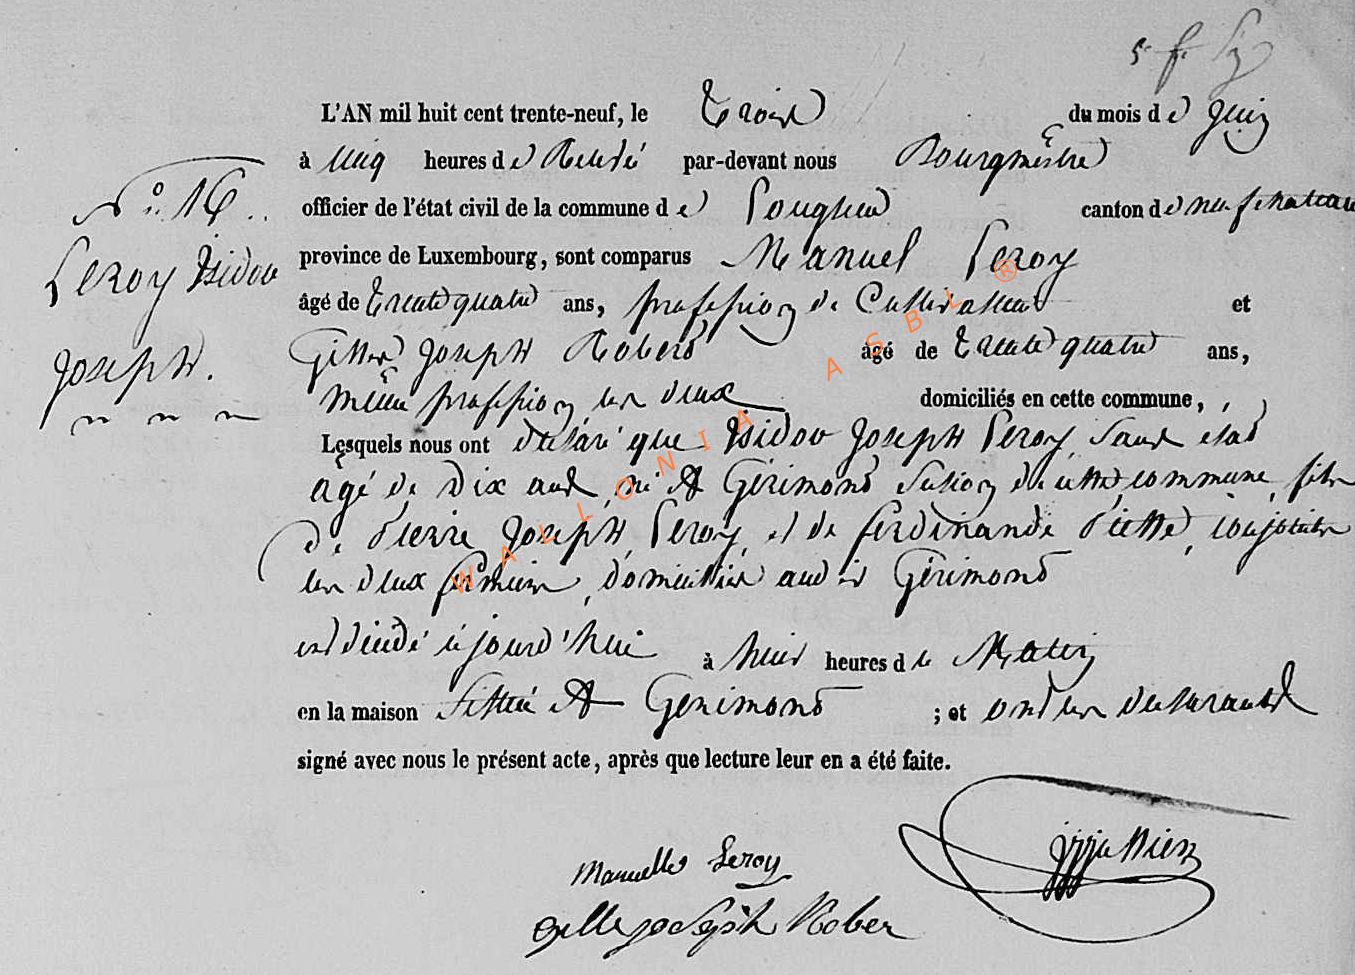 L'AN mil huit cent trente-neuf, le trois du mois de Juin
à cinq heures de Relevé par-devant nous Bourgmestre
officier de l'état civil de la commune de Longlier canton de neufchateau
N° 16.
province de Luxembourg, sont comparus Manuel Leroy
Leroy Isidor
âgé de trente quatre ans, profession de Cultivateur et
Joseph.
Gilles Joseph Robert âgé de trente quatre ans,
même profession les deux domiciliés en cette commune,
Lesquels nous ont déclaré que Isidor Joseph Leroy, sans état
agé de dix ans, né A Gérimont section de cette commune, fils
de Pierre Joseph Leroy, et de ferdinande Piette, conjoints
les deux domiciliés audit Gérimont
est décédé ce jourd'hui à huit heures du Matin
en la maison sittuée A Gerimont ; et ont les déclarants
signé avec nous le présent acte, après que lecture leur en a été faite.
Manuelle Leroy
Gille joseph Rober
WALLONIA ASBL ®